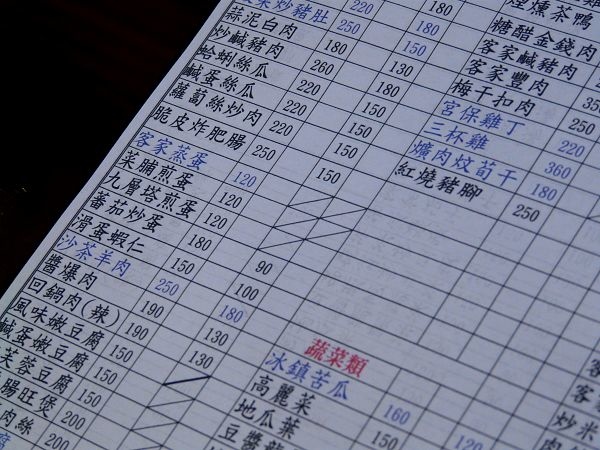 炒豬肚 250 150
蒜泥白肉 180 130
炒鹹豬肉 260
蛤蜊絲瓜 220 180
鹹蛋絲瓜 220 150
蘿蔔絲炒肉 220 150
脆皮炸肥腸 250 150
客家蒸蛋 120
菜脯煎蛋 120
九層塔煎蛋 120
番茄炒蛋 180 90
滑蛋蝦仁 150 100
沙茶羊肉 250 180
醬爆肉 190 130
回鍋肉(辣) 190 130
風味嫩豆腐 150
鹹蛋嫩豆腐 150
芙蓉豆腐 150
腸旺煲 200
肉絲 200
煙燻茶鴨
糖醋金錢肉
客家鹹豬肉
客家豐肉 350
梅干扣肉 250
宮保雞丁 220
三杯雞 360
爌肉炆荀干 180
紅燒豬腳 250
蔬菜類
冰鎮苦瓜 160
高麗菜 150 120
地瓜葉
豆醬龍